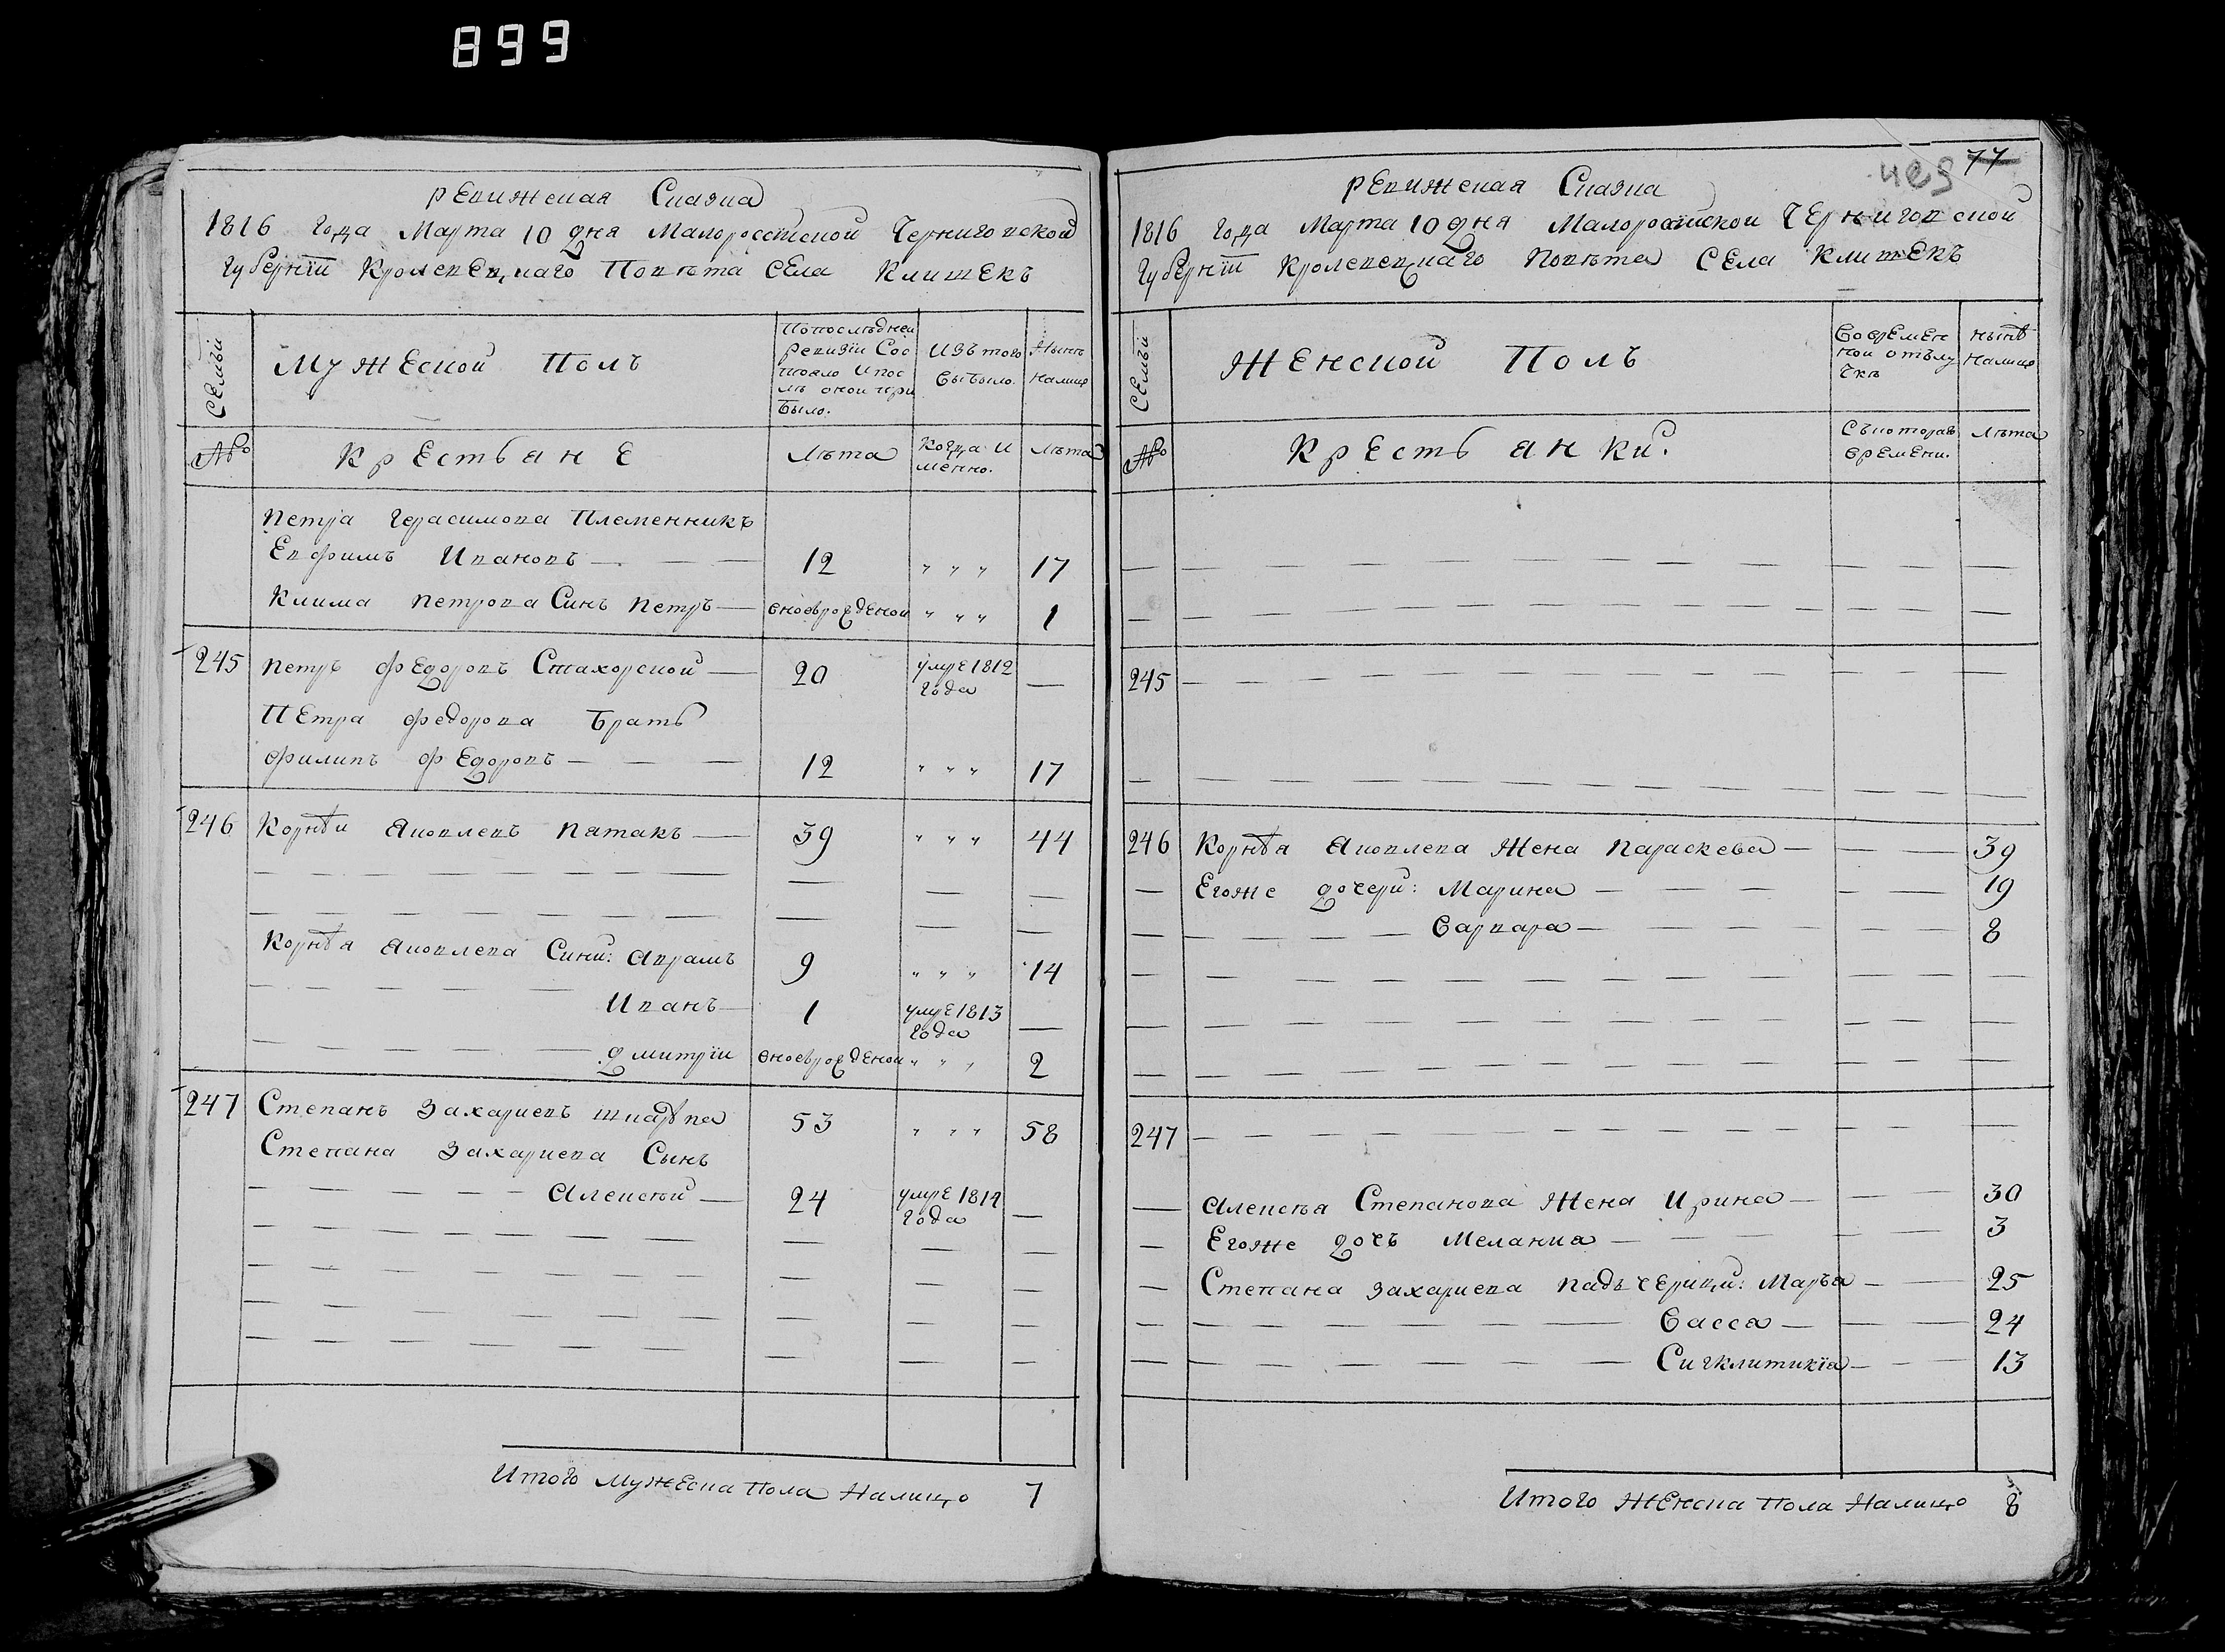 899
Ревижская Сказка
1816 года Марта 10 дня Малоросстской Черниговской
Губернїи Кролевецкаго Повѣта Села Клишекъ
Семьи
Мужеской Полъ
Попослѣдней
Ревизїи Сос
тояло Ипос
лѣ оной при
было.
Изъ того
Выбыло.
Нынѣ
Налицо
№
Крестьяне
Лѣта
Когда и
менно.
Лѣта
Петра Герасимова Племенникъ
Евфимъ Ивановъ — — — 12 " " " 17
Клима Петрова Синъ Петръ — вноврожденой " " " 1
245 Петръ Федоровъ Стахорской — 20 умре 1812 года —
Петра Федорова Братъ
Филипъ Федоровъ — — — 12 " " " 17
246 Корнѣи Яковлевъ Патакъ — 39 " " " 44
Корнѣя Яковлева Сини: Аврамъ 9 " " " 14
Иванъ — 1 умре 1813 года —
Дмитрїи вноврожденой " " " 2
247 Степанъ Захариевъ 53 " " " 58
Степана Захариева Сынъ
Алексѣй — 24 умре 1814 года —
Итого Мужеска Пола Налицо 7
77
Ревижская Сказка
1816 года Марта 10 дня Малоросийской Черниговской
Губернїи Кролевецкаго Повѣта Села Клишекъ
Семьи
Женской Полъ
Вовремен
ной отълу
чкѣ
Нынѣ
Налицо
№
Крестьянки.
Съкотораго
времени.
Лѣта
245
246 Корнѣя Яковлева Жена Параскева — 39
Егоже дочери: Марина — 19
Варвара — 8
247
Алексѣя Степанова Жена Ирина — 30
Егоже дочъ Мелания — 3
Степана Захариева Падъчерици: Маръя — 25
Васса — 24
Сигклитикїа — 13
Итого Женска Пола Налицо 8